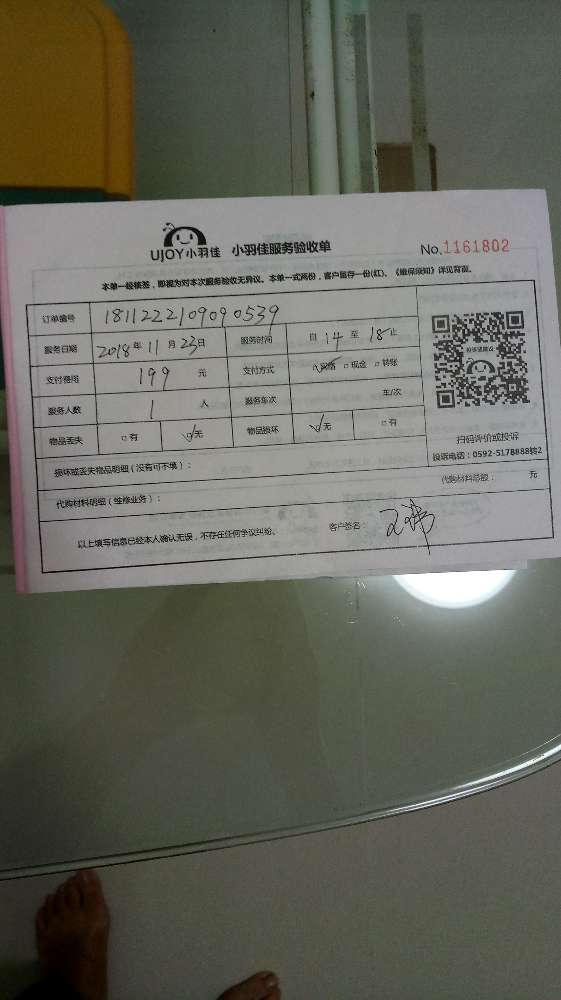 UJOY小羽佳 小羽佳服务验收单 No.1161802
本单一经核签，即视为对本次服务验收无异议。本单一式两份，客户留存一份(红)、《维保须知》详见背面。
订单编号 1811222109090539
服务日期 2018年11月23日 服务时间 自14至18止
支付费用 199元 支付方式 网络 □现金 □转账
服务人数 1人 服务车次 车/次
物品丢失 □有 ☑无 物品损坏 ☑无 □有
扫码评价或投诉
投诉电话：0592-5178888转2
损坏或丢失物品明细（没有可不填）：
代购材料明细（维修业务）： 代购材料总额： 元
以上填写信息已经本人确认无误，不存在任何争议纠纷。 客户签名：